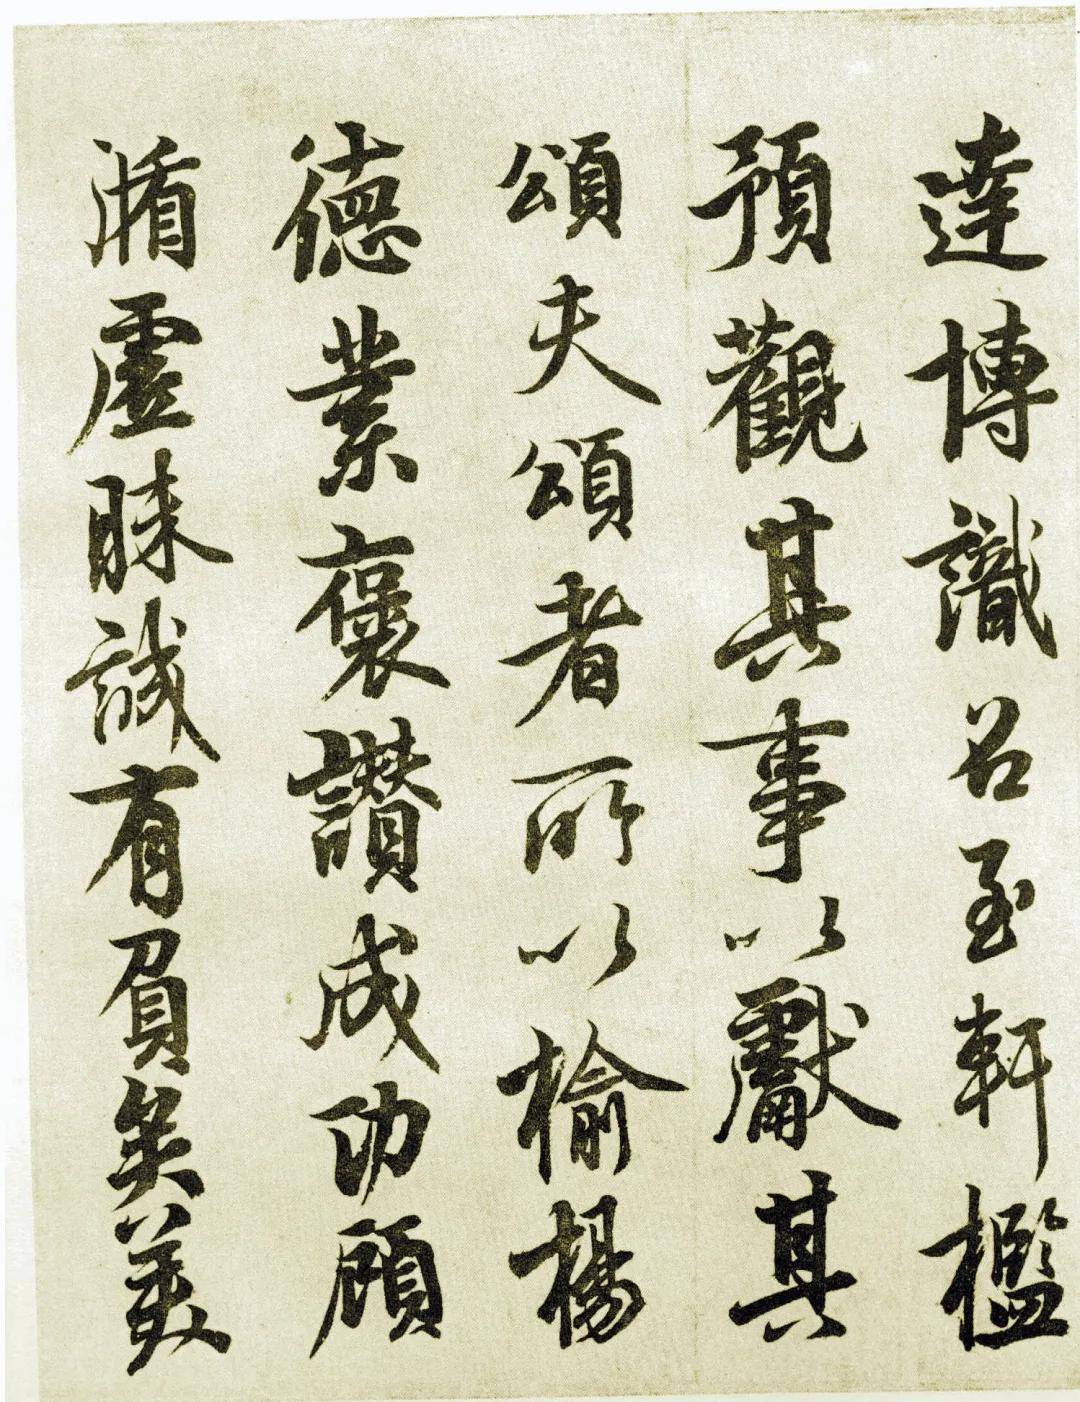 達博識召至軒檻
預觀其事以獻其
頌夫頌者所以榆楊
德業褒讚成功顧
循虛昧誠有負矣美